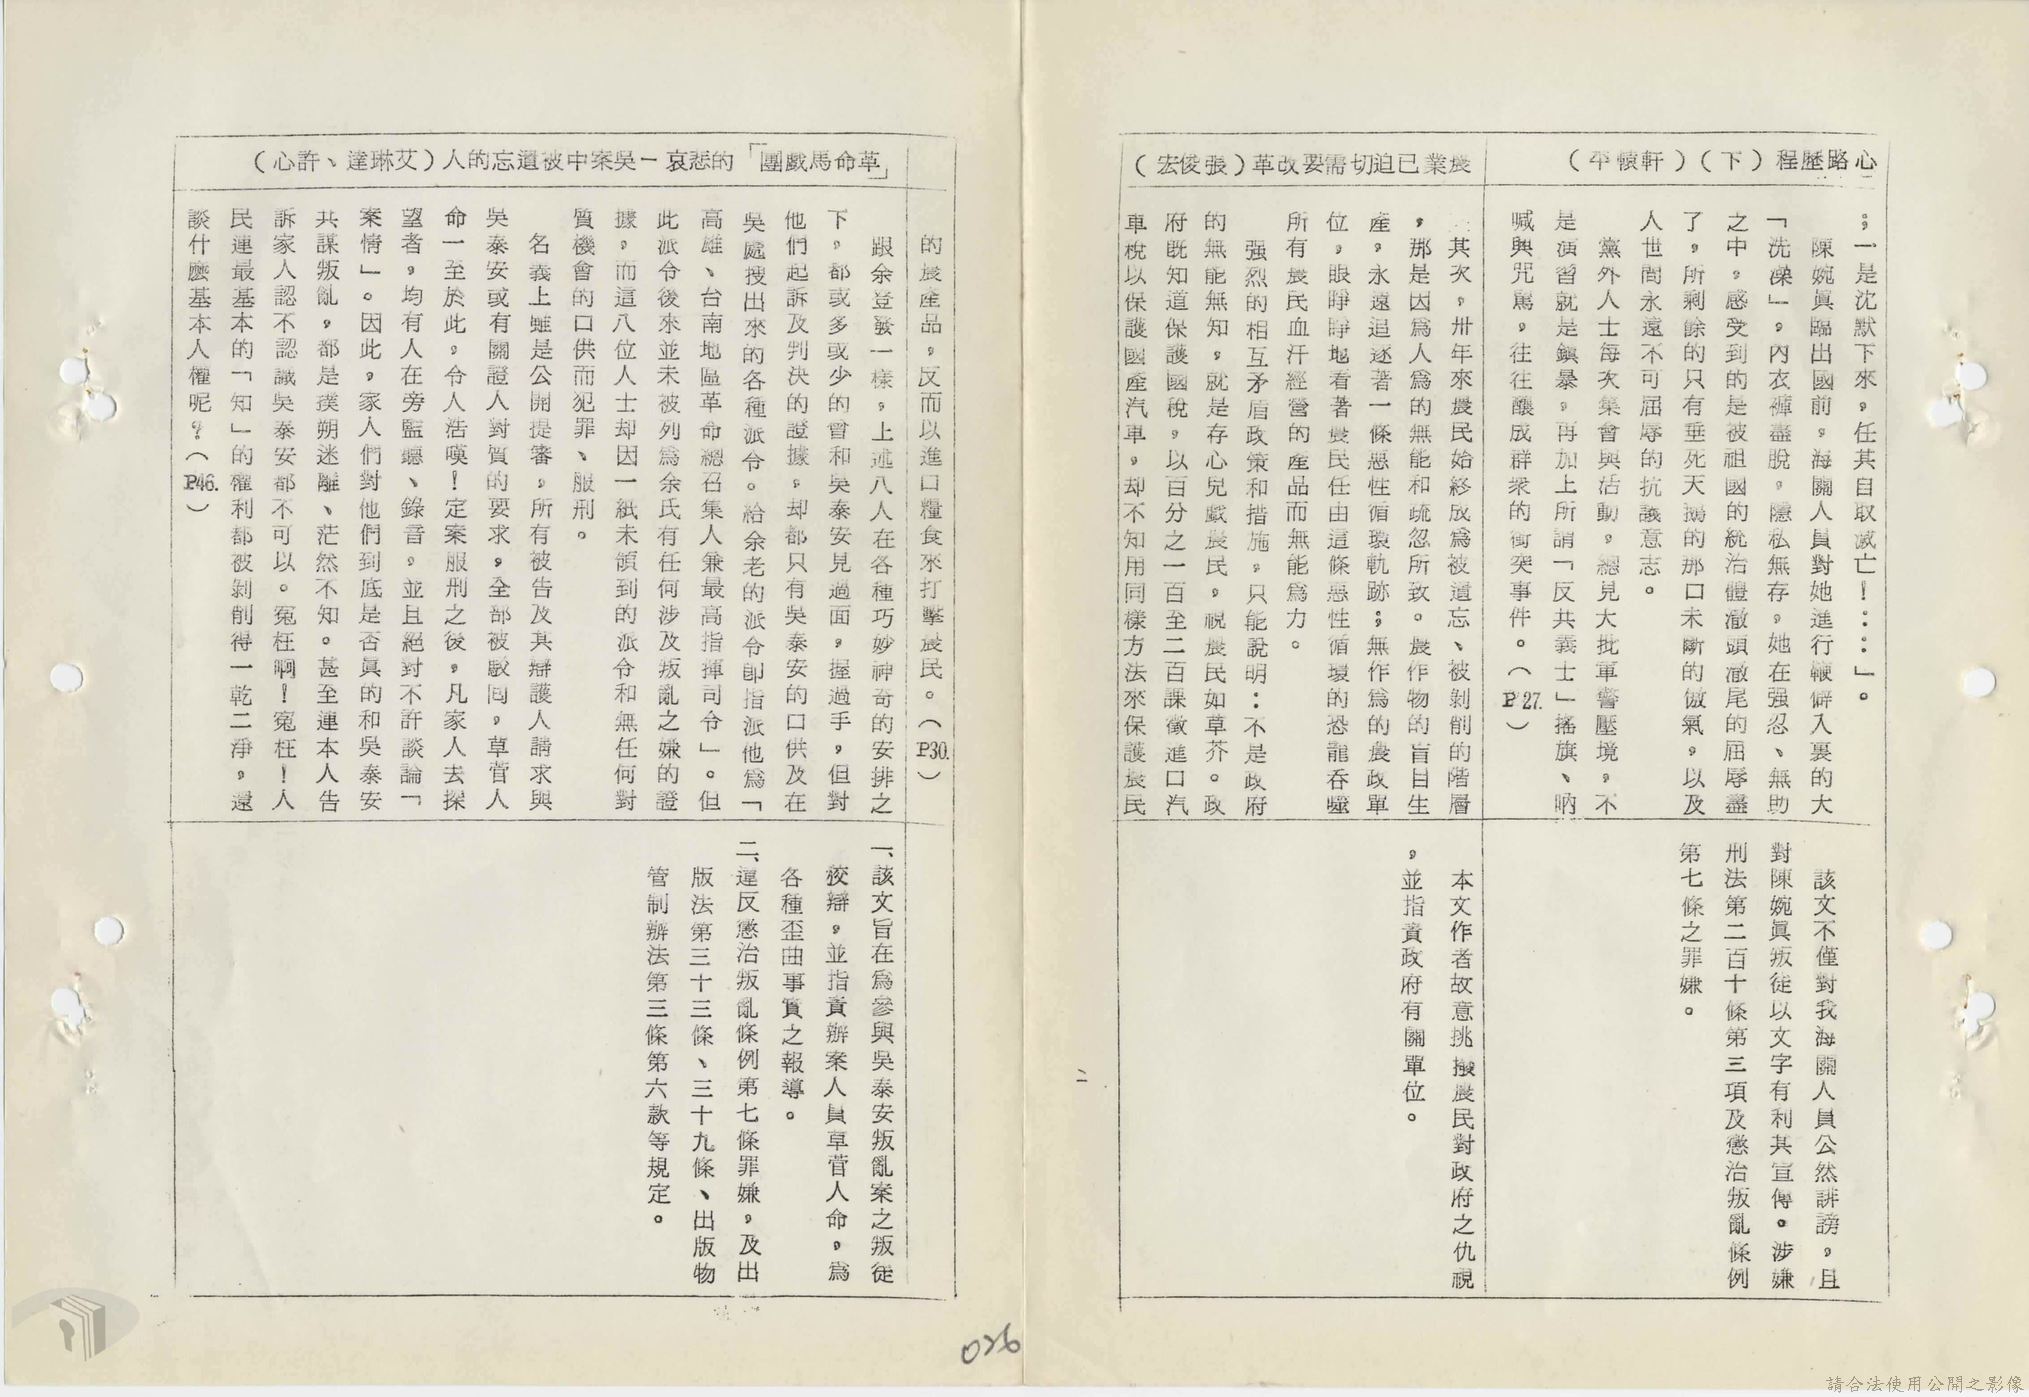 心路歷程（下）（軒愼平）
；一是沈默下來，任其自取滅亡！⋯⋯」。
陳婉眞臨出國前，海關人員對她進行鞭僻入裏的大
「洗澡」，內衣褲盡脫，隱私無存，她在强忍、無助
之中，感受到的是被祖國的統治體澈頭澈尾的屈辱盡
了，所剩餘的只有垂死天鵝的那口未斷的傲氣，以及
人世間永遠不可屈辱的抗議意志。
黨外人士每次集會與活動，總見大批軍警壓境，不
是演習就是鎮暴，再加上所謂「反共義士」搖旗、吶
喊與咒罵，往往釀成群衆的衝突事件。（P27.）
該文不僅對我海關人員公然誹謗，且
對陳婉眞叛徒以文字有利其宣傳。涉嫌
刑法第二百十條第三項及懲治叛亂條例
第七條之罪嫌。
農業已迫切需要改革（張俊宏）
其次，卅年來農民始終成爲被遺忘、被剝削的階層
，那是因爲人爲的無能和疏忽所致。農作物的盲目生
產，永遠追逐著一條惡性循環軌跡；無作爲的農政單
位，眼睜睜地看著農民任由這條惡性循環的恐龍吞噬
所有農民血汗經營的產品而無能爲力。
强烈的相互矛盾政策和措施，只能說明：不是政府
的無能無知，就是存心兒戲農民，視農民如草芥。政
府旣知道保護國稅，以百分之一百至二百課徵進口汽
車稅以保護國產汽車，却不知用同樣方法來保護農民
本文作者故意挑撥農民對政府之仇視
，並指責政府有關單位。
二
的農產品，反而以進口糧食來打擊農民。（P30.）
「革命馬戲團」的悲哀－吳案中被遺忘的人（艾琳達、許心）
跟余登發一樣，上述八人在各種巧妙神奇的安排之
下，都或多或少的曾和吳泰安見過面，握過手，但對
他們起訴及判決的證據，却都只有吳泰安的口供及在
吳處搜出來的各種派令。給余老的派令卽指派他爲「
高雄、台南地區革命總召集人兼最高指揮司令」。但
此派令後來並未被列爲余氏有任何涉及叛亂之嫌的證
據，而這八位人士却因一紙未領到的派令和無任何對
質機會的口供而犯罪、服刑。
名義上雖是公開提審，所有被告及其辯護人請求與
吳泰安或有關證人對質的要求，全部被駁囘，草菅人
命一至於此，令人浩嘆！定案服刑之後，凡家人去探
望者，均有人在旁監聽、錄音，並且絕對不許談論「
案情」。因此，家人們對他們到底是否眞的和吳泰安
共謀叛亂，都是撲朔迷離、茫然不知。甚至連本人告
訴家人認不認識吳泰安都不可以。冤枉啊！冤枉！人
民連最基本的「知」的權利都被剝削得一乾二淨，還
談什麼基本人權呢？（P46.）
一、該文旨在爲參與吳泰安叛亂案之叛徒
狡辯，並指責辦案人員草菅人命，爲
各種歪曲事實之報導。
二、違反懲治叛亂條例第七條罪嫌，及出
版法第三十三條、三十九條、出版物
管制辦法第三條第六款等規定。
026
請合法使用公開之影像